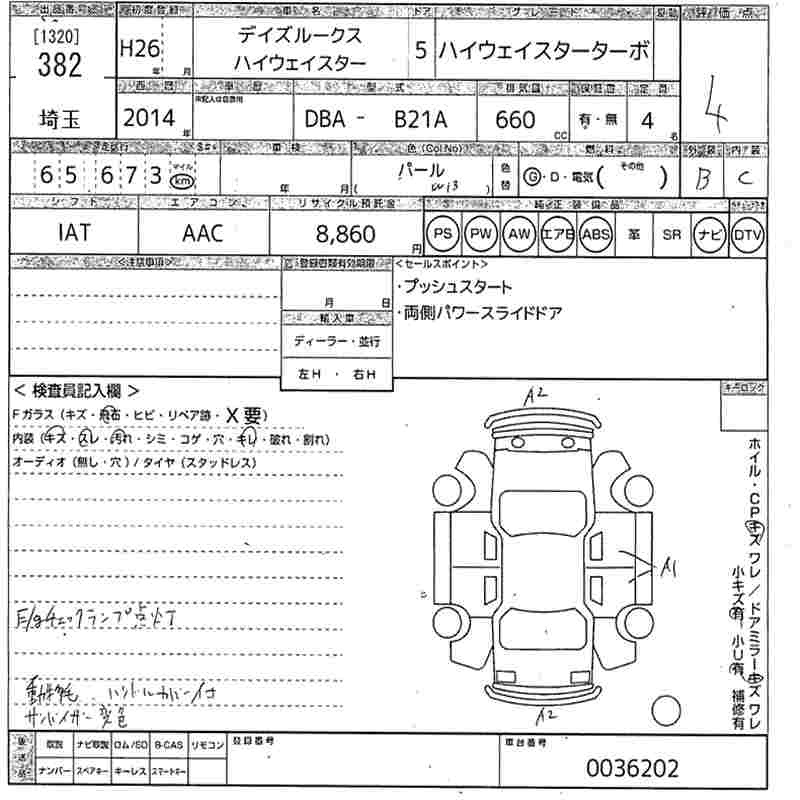 出品番号 初度登録 車名 ドア グレード 評価点
[1320]
382
H26 年 月
デイズルークス
ハイウェイスター
5 ハイウェイスターターボ
4
西暦 車歴 型式 排気量 保証書 定員
埼玉 2014 年 DBA - B21A 660 CC 有・無 4 名
走行 車検 色 (Col No) 燃料 外装 内装
65 673 マイル km 年 月 パール ( W13 ) 色替 G・D・電気( その他 ) B C
シフト エアコン リサイクル預託金 純正装備品
IAT AAC 8,860 円 PS PW AW エアB ABS 革 SR ナビ DTV
<注意事項> 登録書類有効期限 <セールスポイント>
月 日 ・プッシュスタート
輸入車 ・両側パワースライドドア
ディーラー・並行
左H ・ 右H
< 検査員記入欄 > キーロック
Fガラス (キズ・飛石・ヒビ・リペア跡・X要)
内装 (キズ・スレ・汚れ・シミ・コゲ・穴・キレ・破れ・割れ)
オーディオ (無し・穴) / タイヤ (スタッドレス)
A2
A1
A2
ホイル・CPキズワレ/ドアミラーキズワレ
小キズ有 小U有 補修有
E/gチェックランプ点灯
ハンドルカバー付
サンバイザー変色
後送品 取説 ナビ取説 ロム/SD B-CAS リモコン 登録番号 車台番号
ナンバー スペアキー キーレス スマートキー 0036202